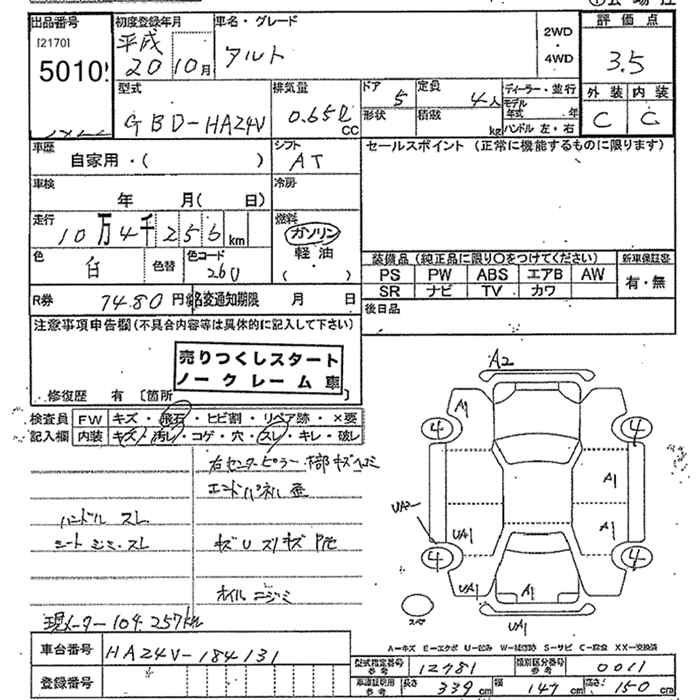 出品番号
[2170]
5010
初度登録年月
平成
20 10月
車名・グレード
アルト
2WD
・
4WD
評価点
3.5
外装 内装
C C
型式
GBD-HA24V
排気量
0.65ℓ
CC
ドア 5
定員 4人
形状
積載 kg
ディーラー・並行
モデル年式 年
ハンドル 左・右
車歴
自家用・( )
シフト
AT
車検
年 月( 日)
冷房
走行
10万4千256km
燃料
ガソリン
軽油
( )
色
白
色替
色コード
26U
R券
7480円
名変通知期限 月 日
セールスポイント(正常に機能するものに限ります)
装備品(純正品に限り〇をつけてください)
新車保証書
PS PW ABS エアB AW
SR ナビ TV カワ
有・無
後日品
注意事項申告欄(不具合内容等は具体的に記入して下さい)
売りつくしスタート
ノークレーム車
修復歴 有 〔箇所
検査員 FW キズ・飛石・ヒビ割・リペア跡・×要
記入欄 内装 キズ・汚レ・コゲ・穴・スレ・キレ・破レ
右センターピラー
エンドパネル
ハンドル スレ
シート シミ・スレ
オイルニジミ
現メーター 104.257km
A2
A1
4
4
A1
UA2
A1
UA1
4
4
UA1
A1
UA1
スペア
A=キズ E=エクボ U=凹み W=補修跡 S=サビ C=腐食 XX=交換済
車台番号
HA24V-184131
登録番号
型式指定番号 参考
12781
類別区分番号 参考
0011
車庫証明用 参考
長さ 339cm
幅 147cm
高さ 150cm